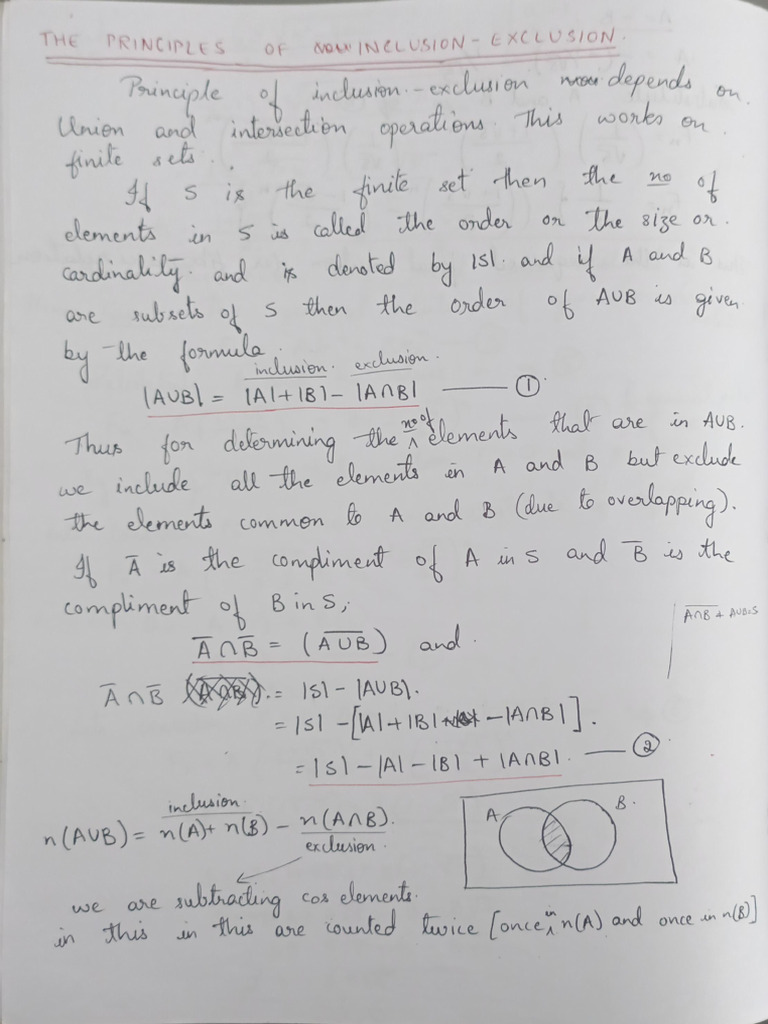 THE PRINCIPLES OF INCLUSION-EXCLUSION.
Principle of inclusion-exclusion depends on
Union and intersection operations. This works on
finite sets.
If S is the finite set then the no of
elements in S is called the order or the size or
cardinality. and is denoted by |S|. and if A and B
are subsets of S then the order of A∪B is given
by the formula.
inclusion. exclusion.
|A∪B| = |A|+|B| - |A∩B| —— ①
Thus for determining the no of elements that are in A∪B.
we include all the elements in A and B but exclude
the elements common to A and B (due to overlapping).
If A̅ is the compliment of A in S and B̅ is the
compliment of B in S,
A̅∩B̅ = (A̅∪̅B̅) and
A̅∩̅B̅ + A∪B=S
A̅∩B̅ = |S| - |A∪B|.
= |S| - [|A|+|B| - |A∩B|].
= |S| - |A| - |B| + |A∩B|. —— ②
inclusion
n(A∪B) = n(A)+ n(B) - n(A∩B).
exclusion.
A B.
we are subtracting cos elements.
in this in this are counted twice [once in n(A) and once in n(B)]